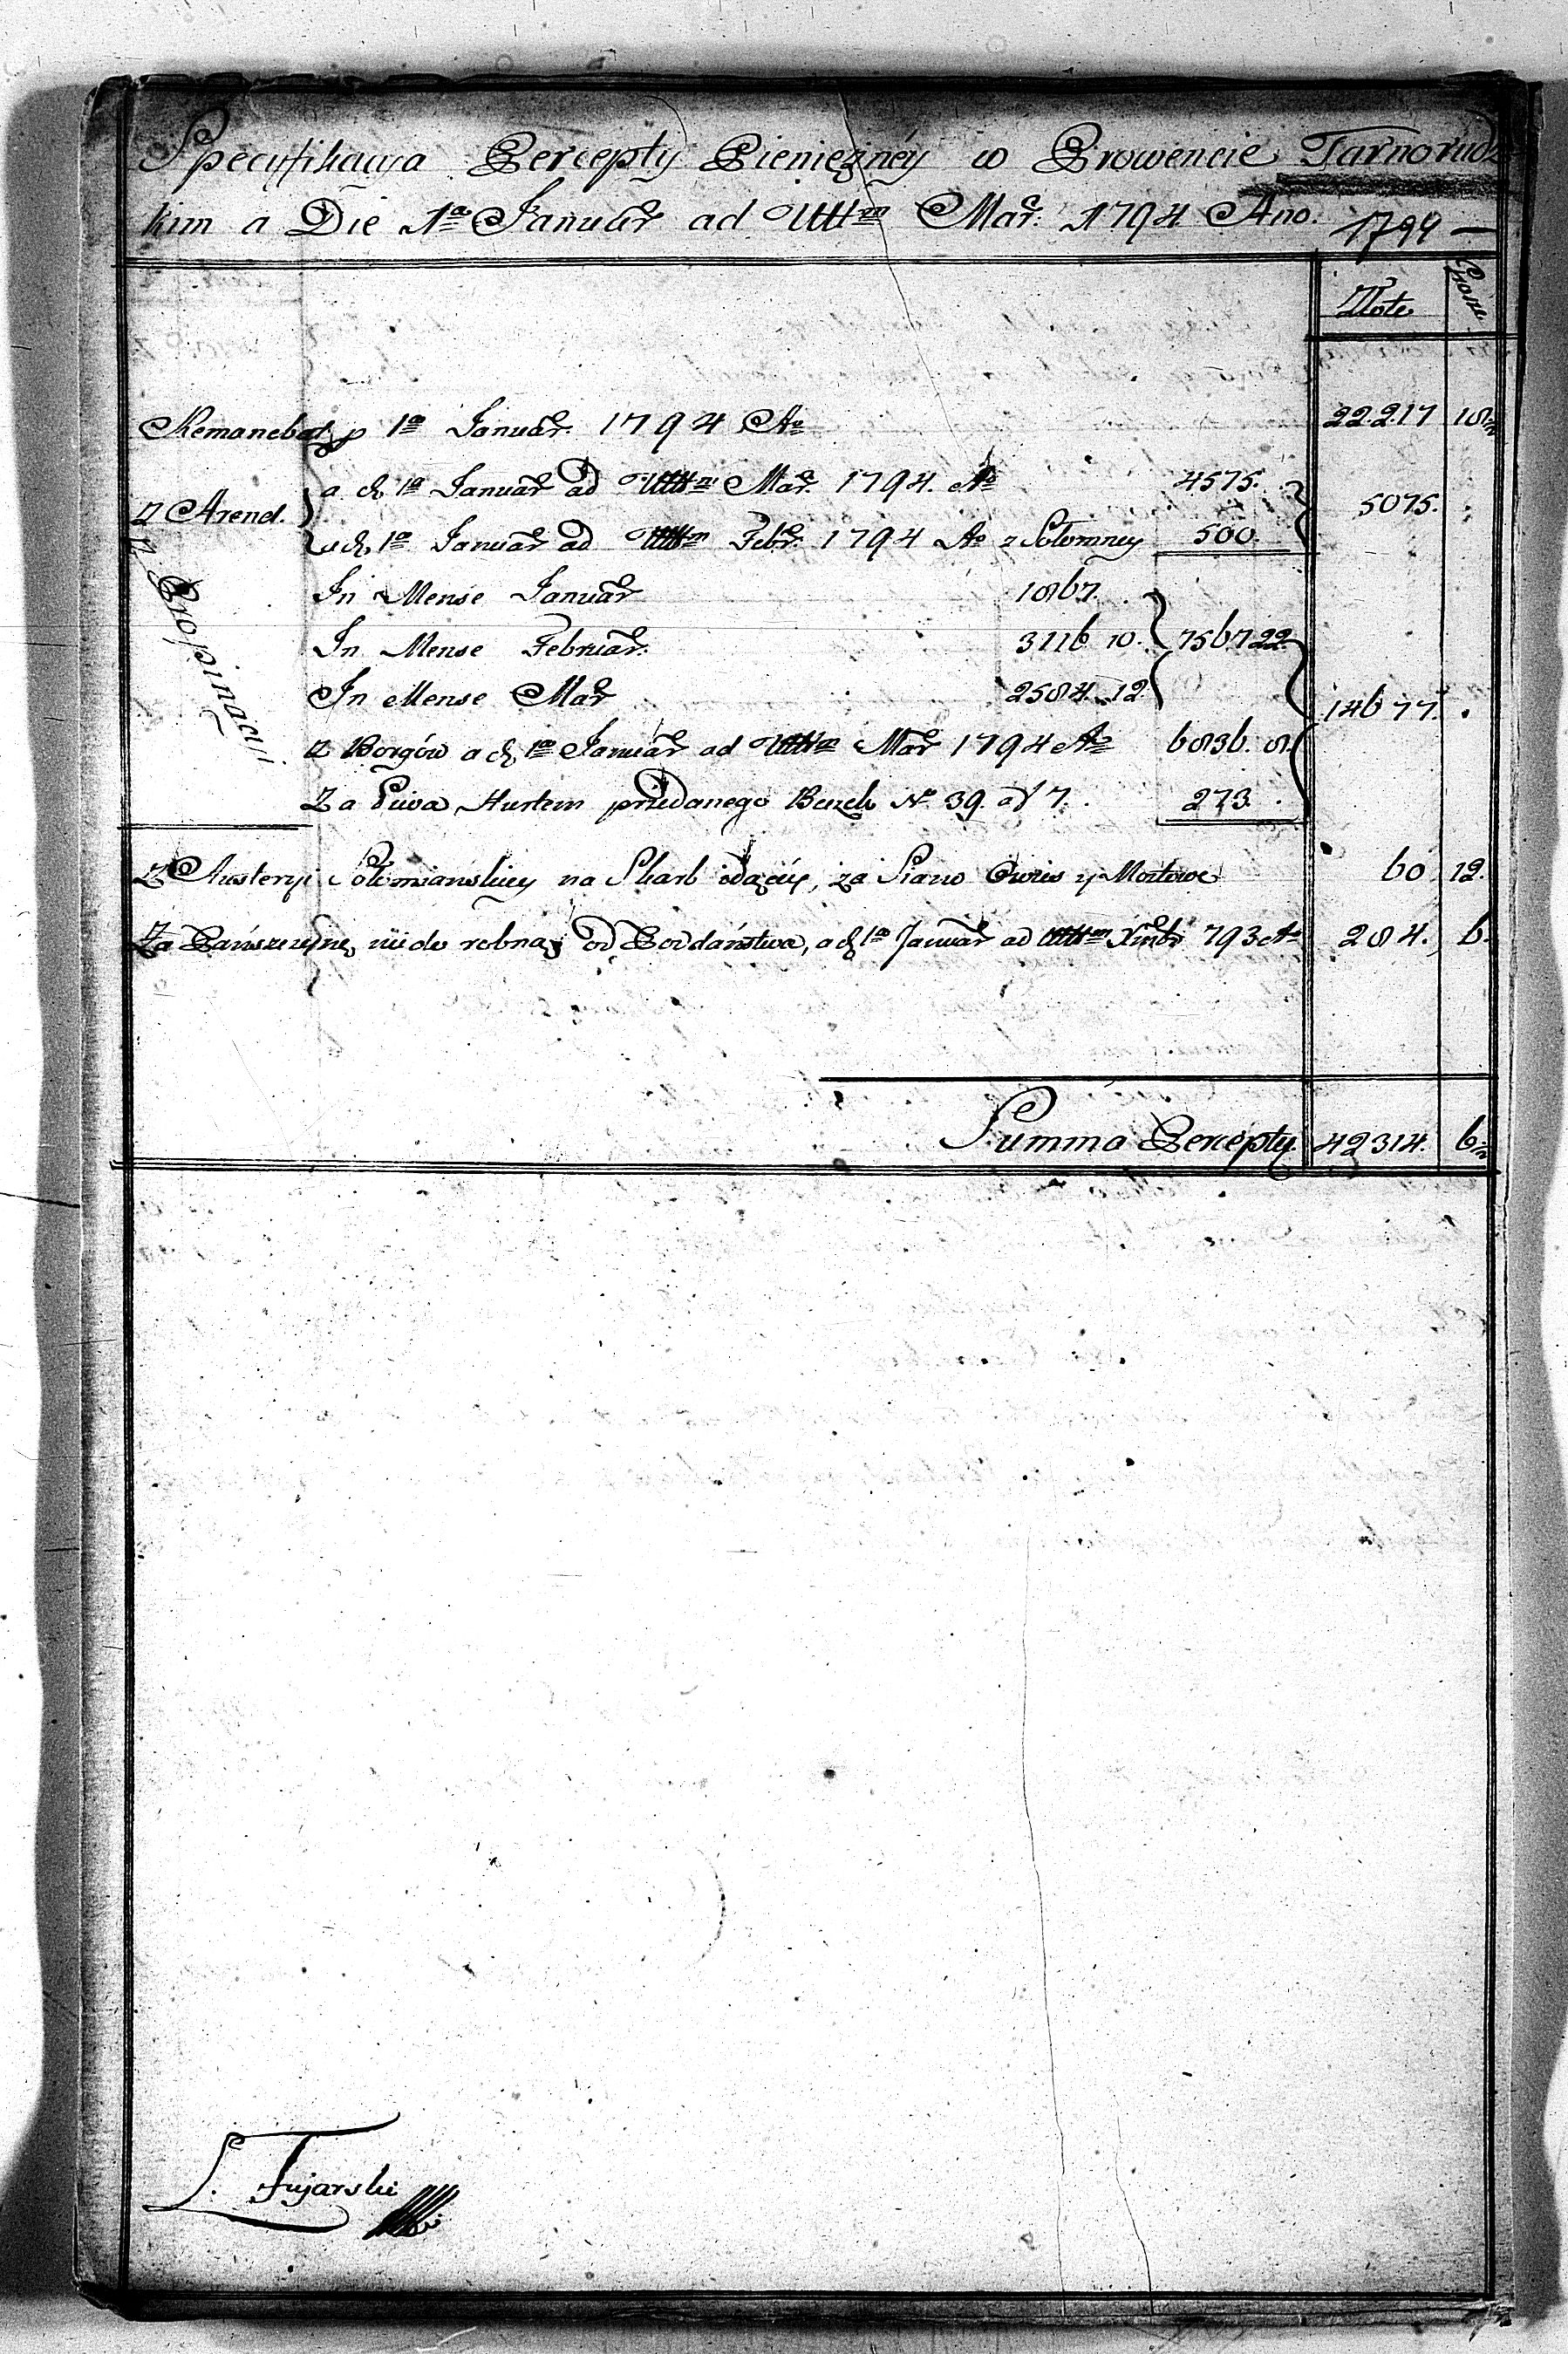 Specyfikacya Percepty Pienięzney w Prowencie Tarnorudz
kim a Die 1ª Januar ad Ultim Mar: 1794 Ano. 1794 —
Złote Grosze
Remanebat p 1ª Januar. 1794 Aº 22.217 18
Z Arend. a d 1ª Januar ad Ultim Mar. 1794. Aº 4575. 5075.
a d 1ª Januar ad Ultim Febr. 1794 Aº z Sołomney 500.
Z Propinacyi
In Mense Januar 1867.
In Mense Februar. 3116 10. 7567 22
In Mense Mar 2584. 12 14677.
Z Borgów a d 1ª Januar ad Ultim Mar 1794 Aº 6836. 8.
Za Piwa Hurtem przedanego Beczek Nº 39. a f 7. 273.
Z Austeryi na Skarb idącey, za Siano Owies y Mostowe 60 12.
Za Pańszczyznę nie do robną od Poddaństwa, a d 1ª Januar ad Ultim Xmbr 793 Aº 284. 6.
Summa Percepty. 42314. 6
L. Fujarski